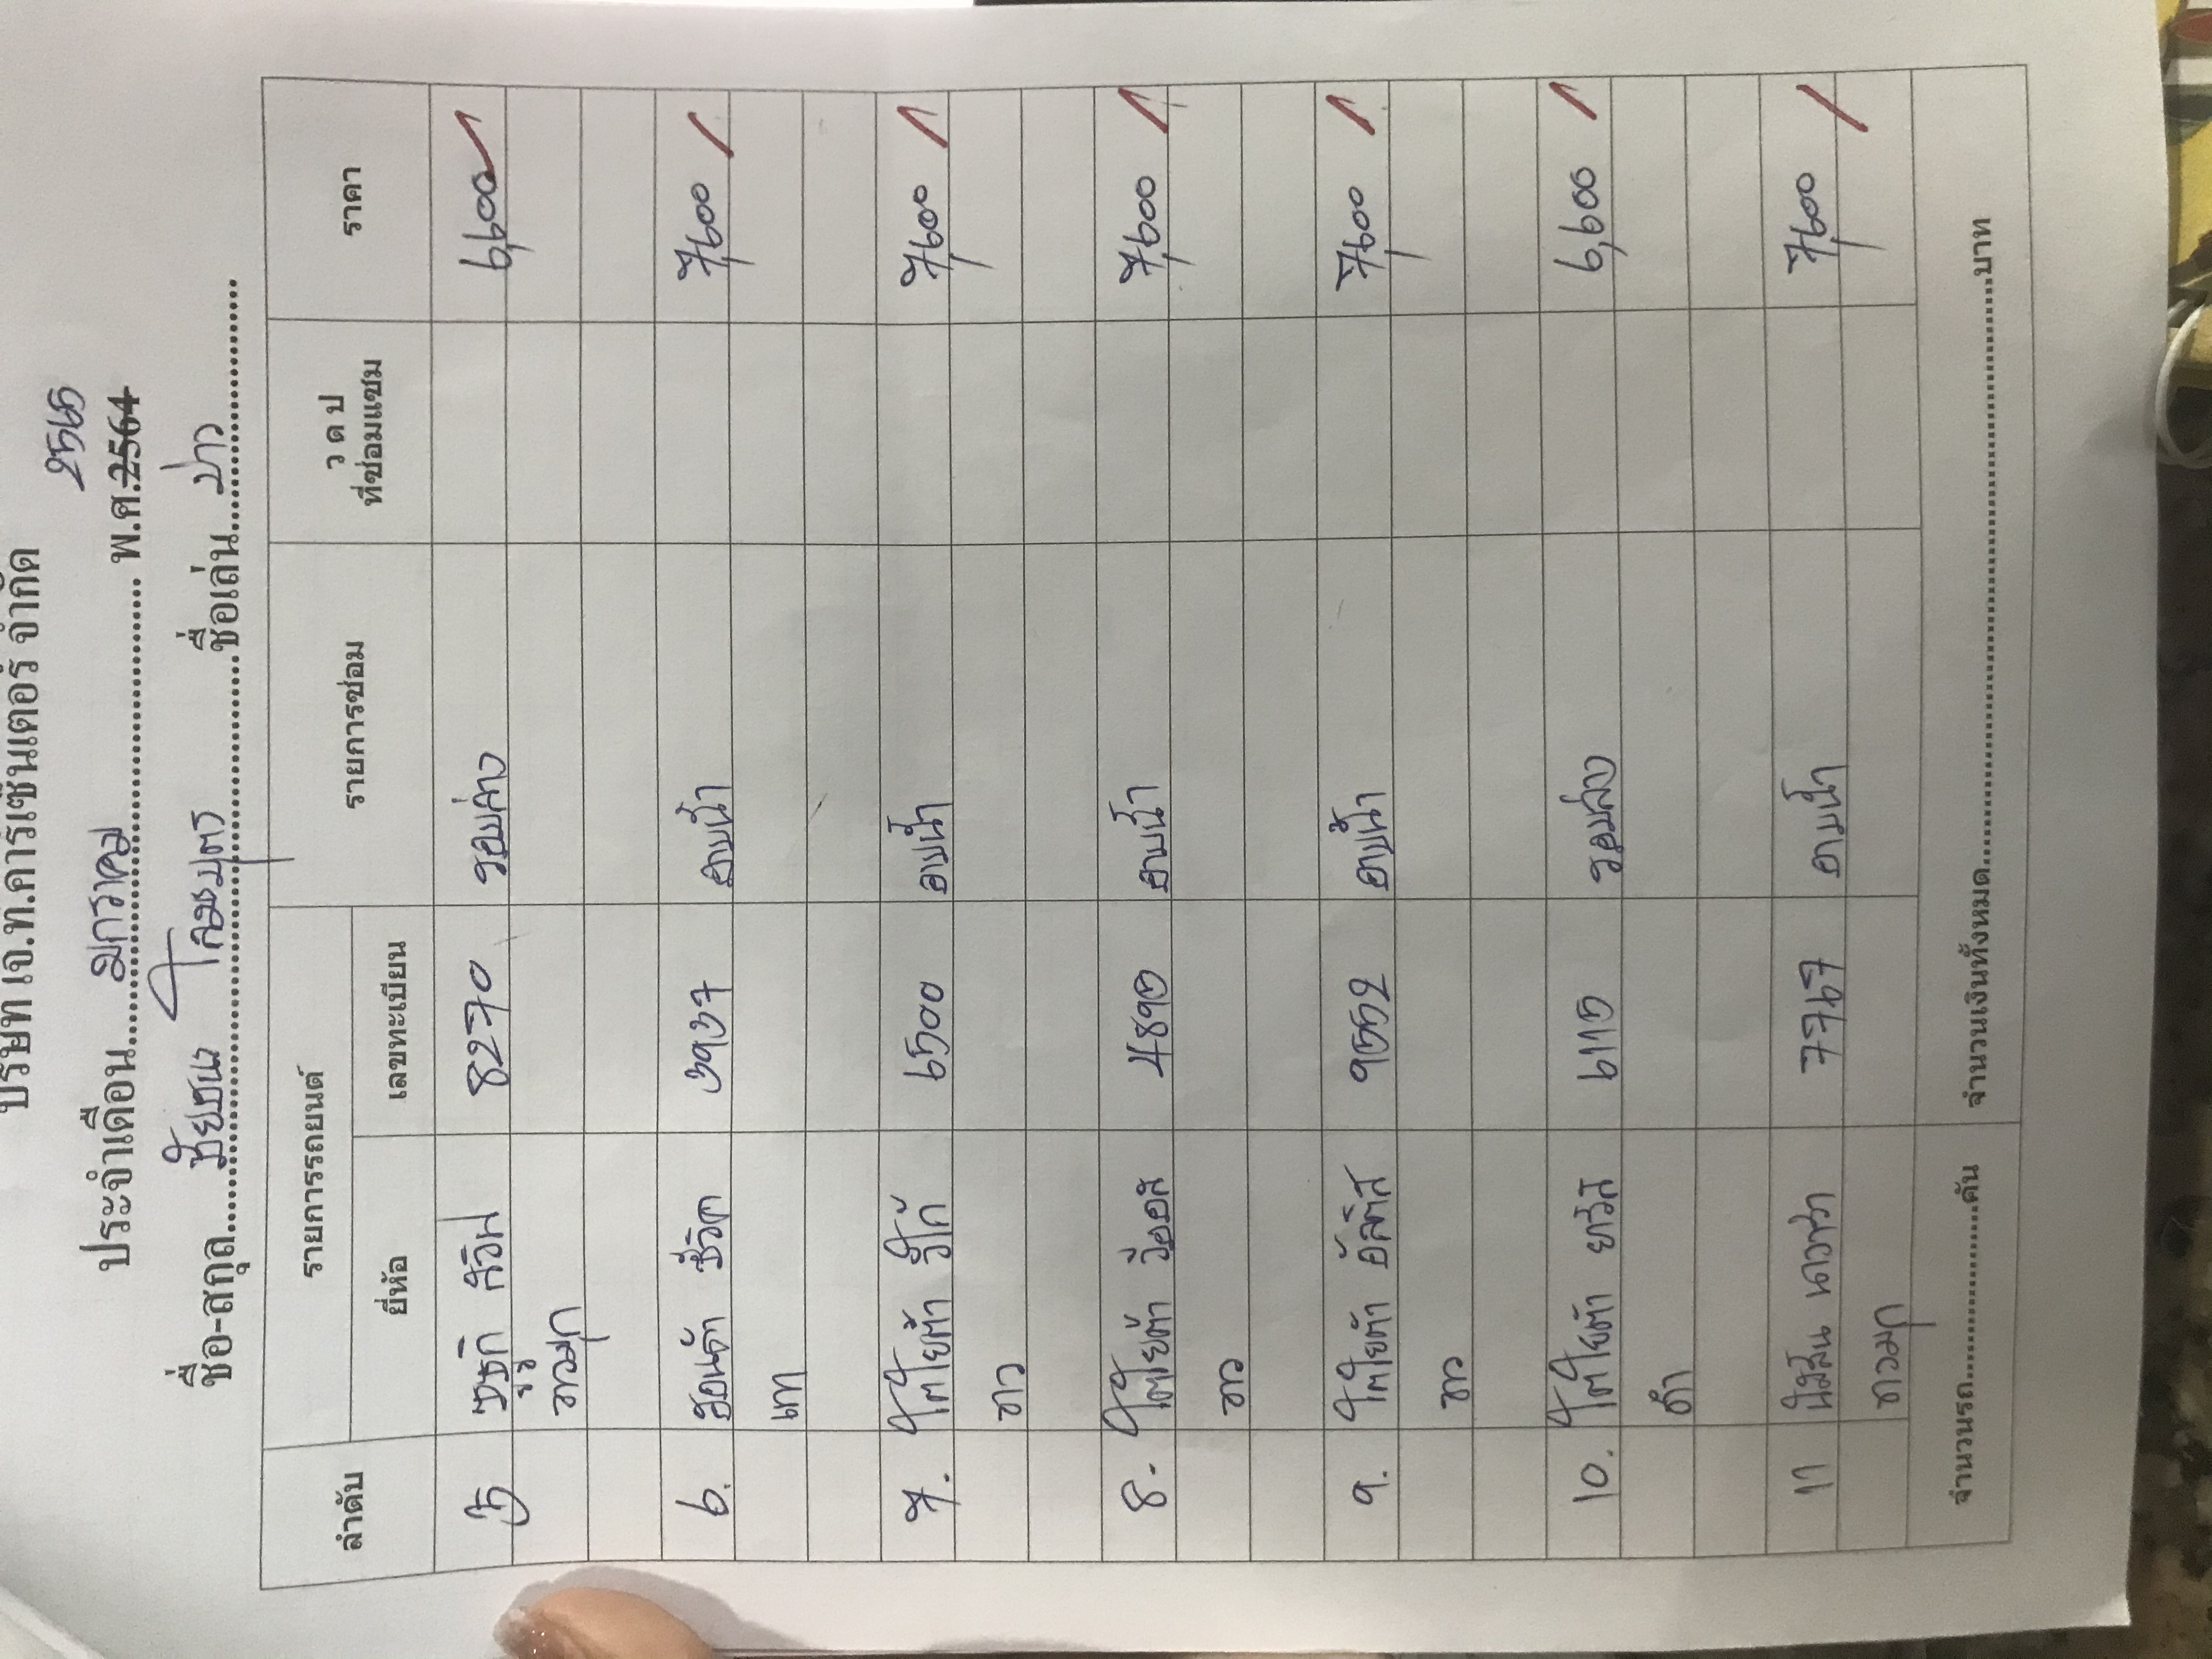 บริษัท เจ.ท.คาร์เซ็นเตอร์ จำกัด
ประจำเดือน มกราคม พ.ศ. 2564
ชื่อ-สกุล ชัยชนะ ชื่อเล่น
ลำดับ รายการรถยนต์ รายการซ่อม ว ด ป ที่ซ่อมแซม ราคา
ยี่ห้อ เลขทะเบียน
5 ซูซูกิ สวิฟ 8270 รอบล่าง 6,600
ขาวมุก
6. ฮอนด้า ซีวิค 3937 อาบน้ำ 7,600
เทา
7. โตโยต้า วีโก้ 6500 อาบน้ำ 7,600
ขาว
8. โตโยต้า วีออส อาบน้ำ 7,600
ขาว
9. โตโยต้า อัลติส 9552 อาบน้ำ 7,600
ขาว
10. โตโยต้า ยาริส รอบล่าง 6,600
ดำ
11 นิสสัน นาวาร่า 7767 อาบน้ำ 7,600
ขาวมุก
จำนวนรถ คัน จำนวนเงินทั้งหมด บาท